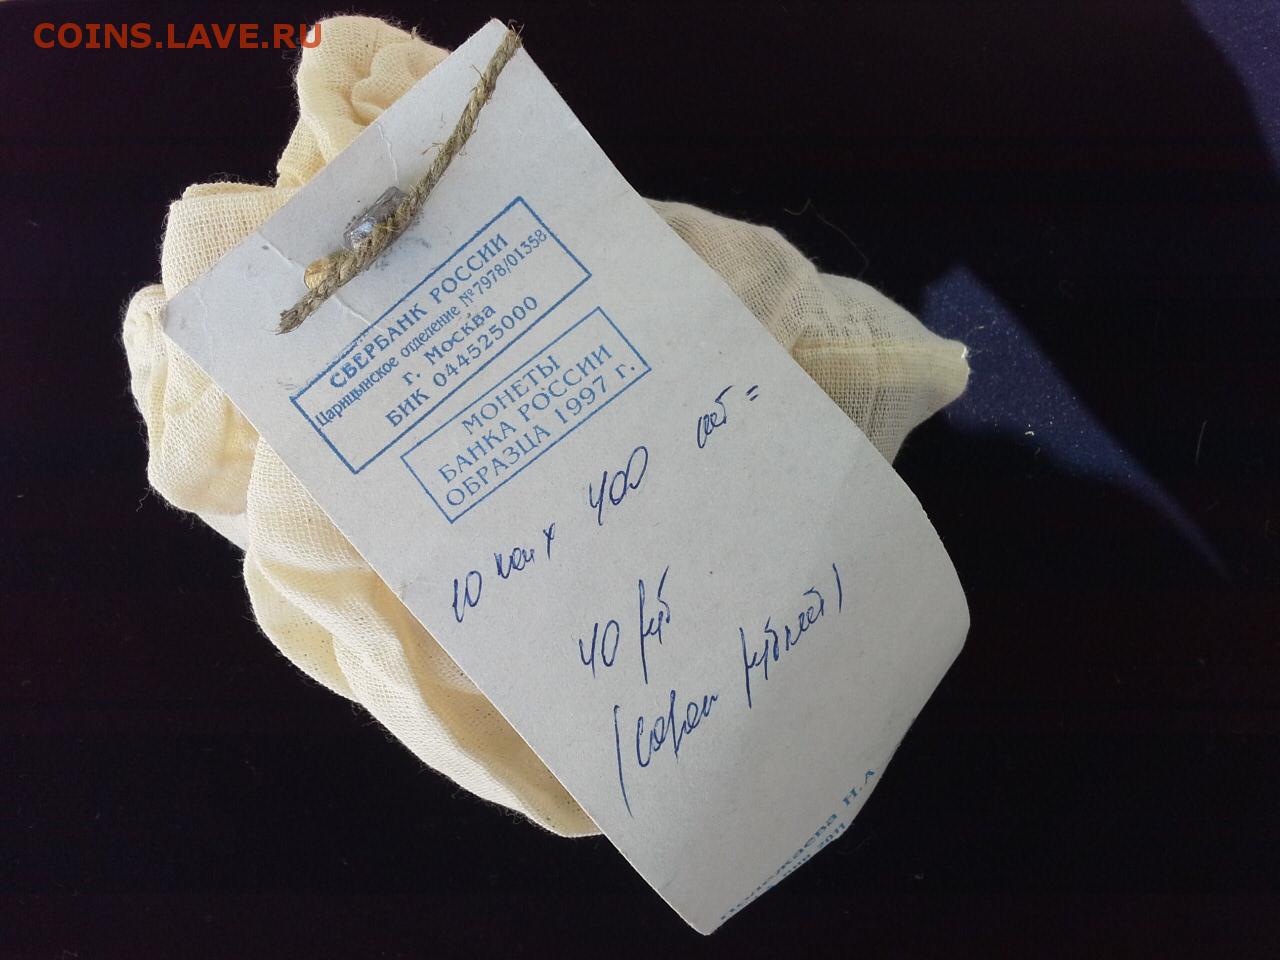 COINS.LAVE.RU
СБЕРБАНК РОССИИ
Царицынское отделение №7978/01358
г. Москва
БИК 044525000
МОНЕТЫ
БАНКА РОССИИ
ОБРАЗЦА 1997 г.
10 коп х 400 шт =
40 руб
(сорок рублей)
Н. А
2011